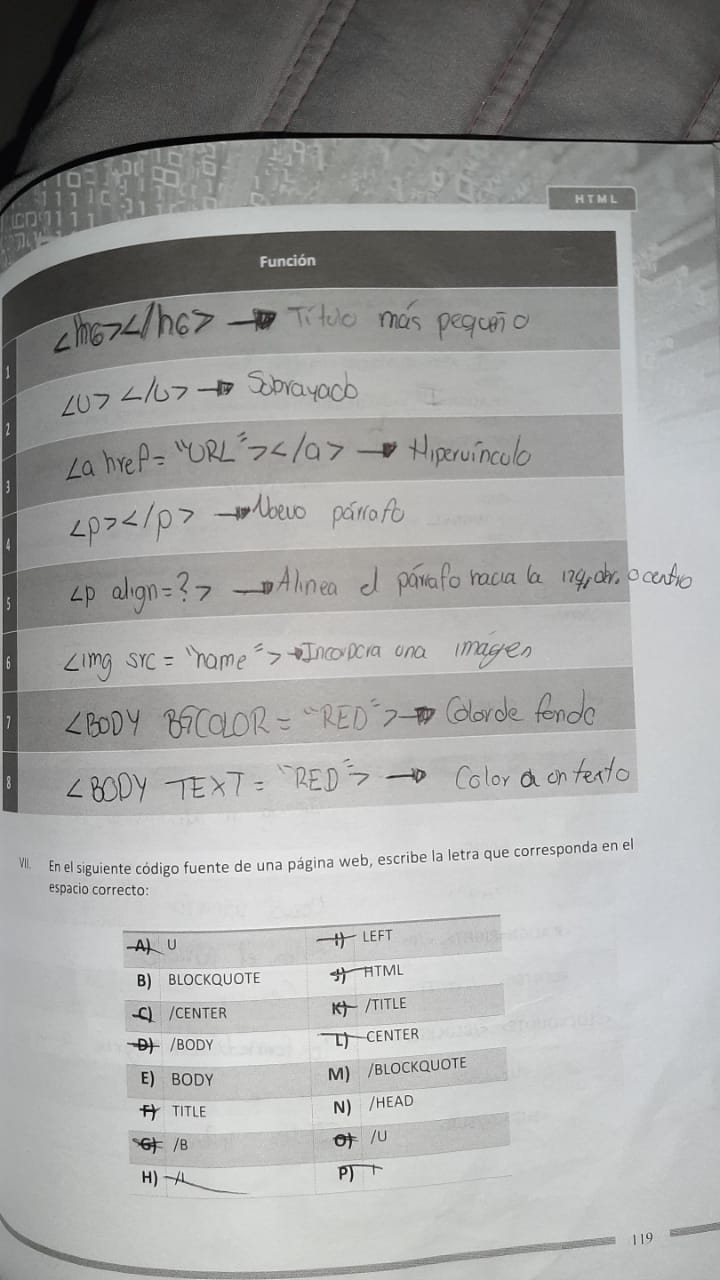 HTML
Función
1 <h6></h6> → Título más pequeño
2 <U> </U> → Sobrayado
3 <a href= "URL"></a> → Hipervínculo
4 <p></p> → Nuevo párrafo
5 <p align=?> → Alinea el párrafo hacia la izq, der. o centro
6 <img src = "name"> → Incorpora una imágen
7 <BODY BGCOLOR = "RED"> → Color de fondo
8 <BODY TEXT = "RED"> → Color a un texto
VII. En el siguiente código fuente de una página web, escribe la letra que corresponda en el
espacio correcto:
A) U I) LEFT
B) BLOCKQUOTE J) HTML
C) /CENTER K) /TITLE
D) /BODY L) CENTER
E) BODY M) /BLOCKQUOTE
F) TITLE N) /HEAD
G) /B O) /U
H) /I P) I
119